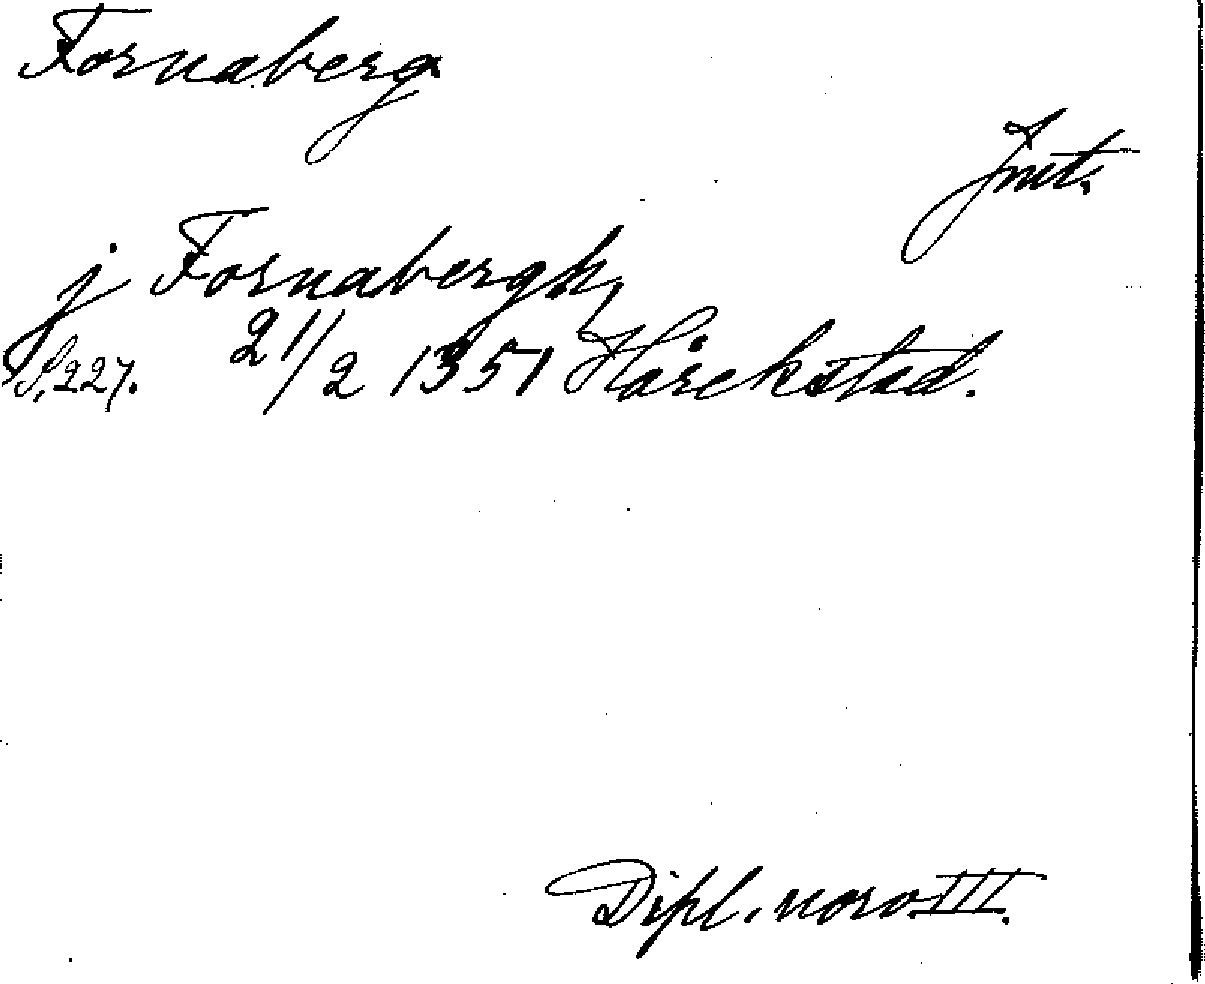 Fornaberg
Jmt.
j Fornabergh,
S. 227. 21/2 1351 Hårekstad.
Dipl. norv. III.